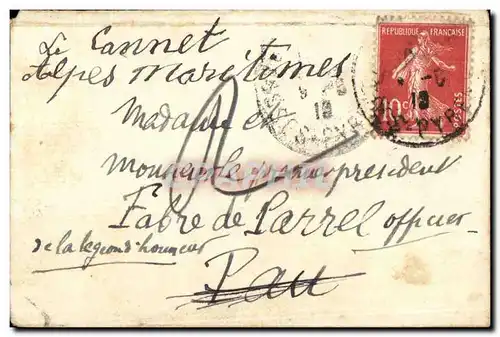 Le Cannet
Alpes Maritimes
RÉPUBLIQUE FRANÇAISE
10c
POSTES
18
18
Madame et
Monsieur le president
Fabre de Parrel officier
de la legion d'honneur
Pau